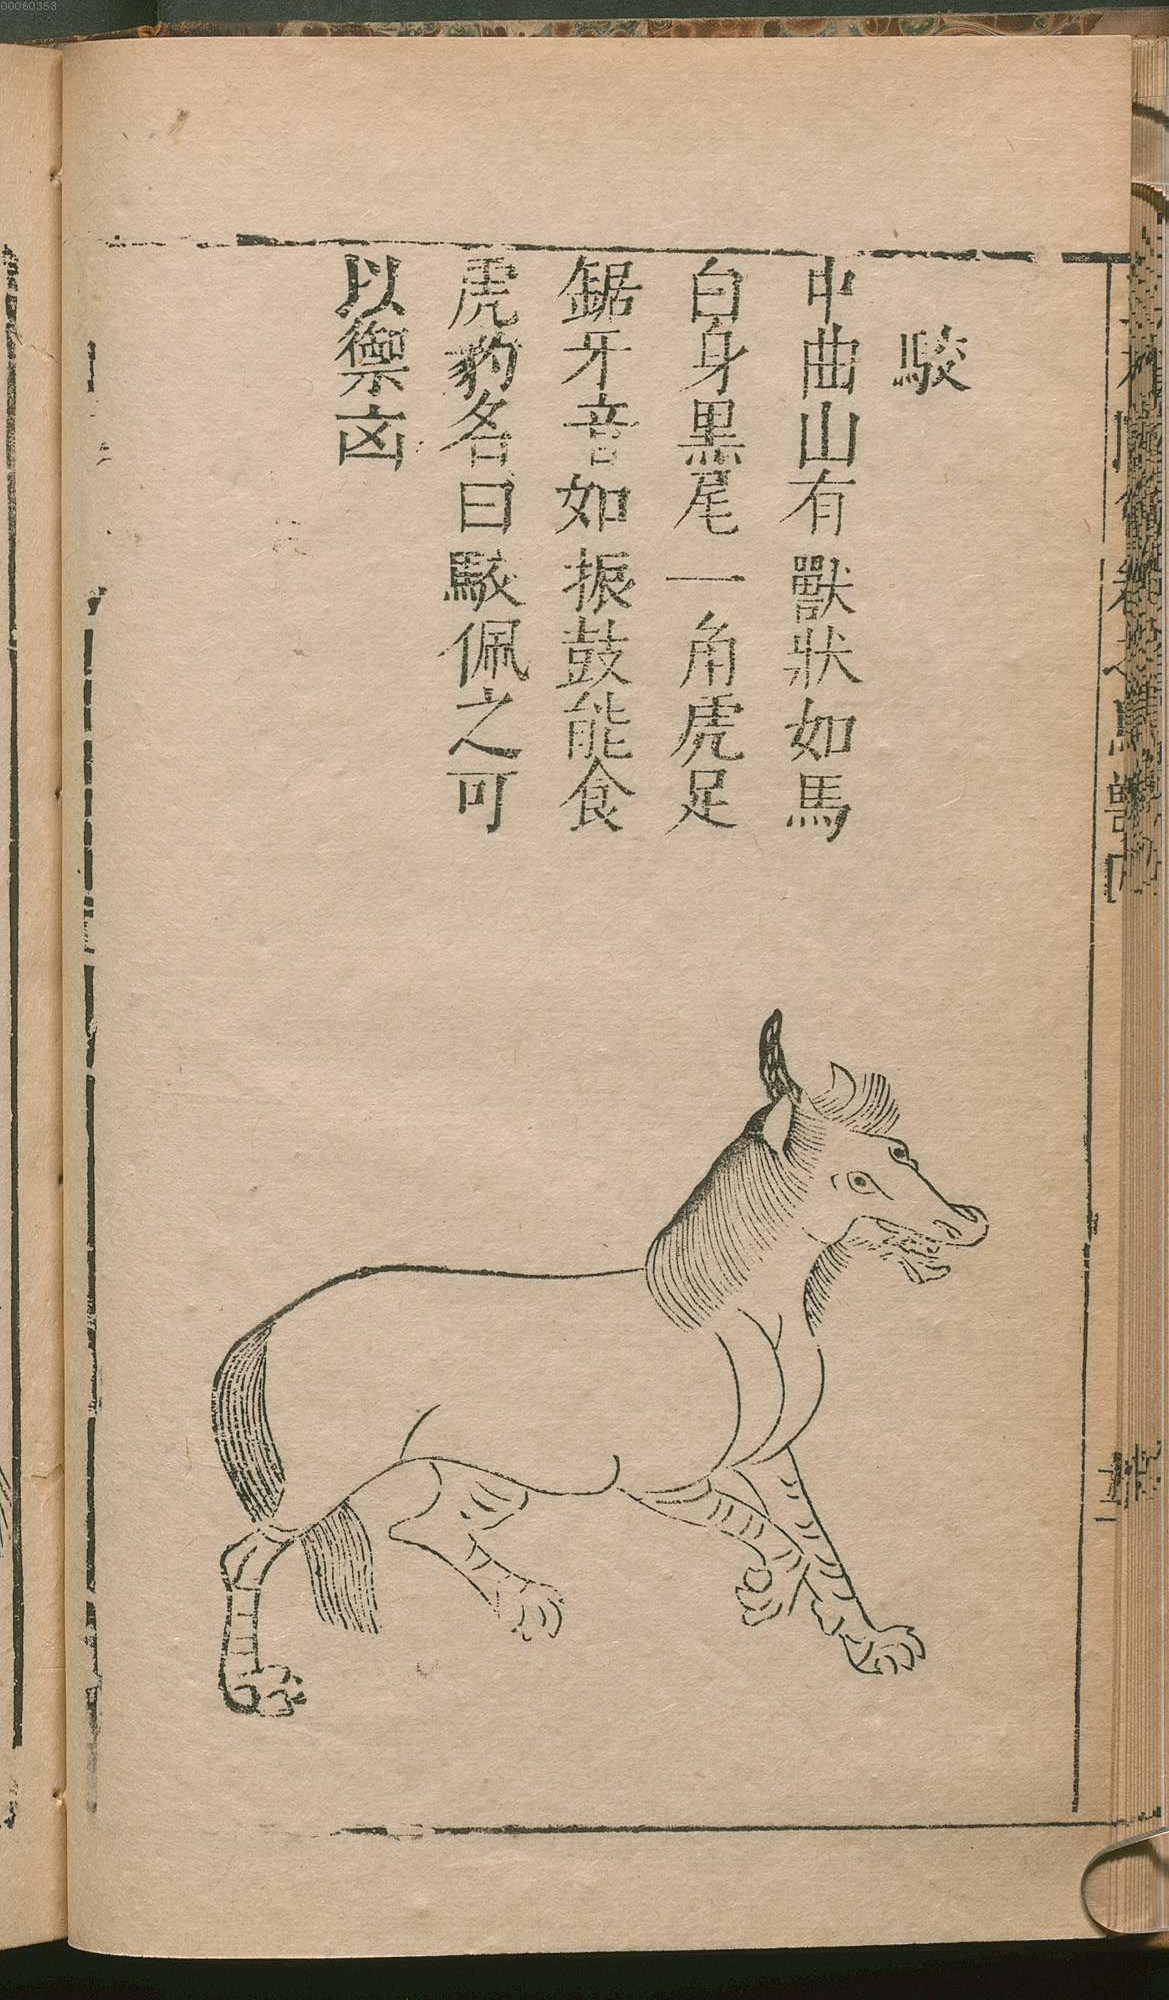 駮
中曲山有獸狀如馬
白身黒尾一角虎足
鋸牙音如振鼓能食
虎豹名曰駮佩之可
以禦㐫
00060353